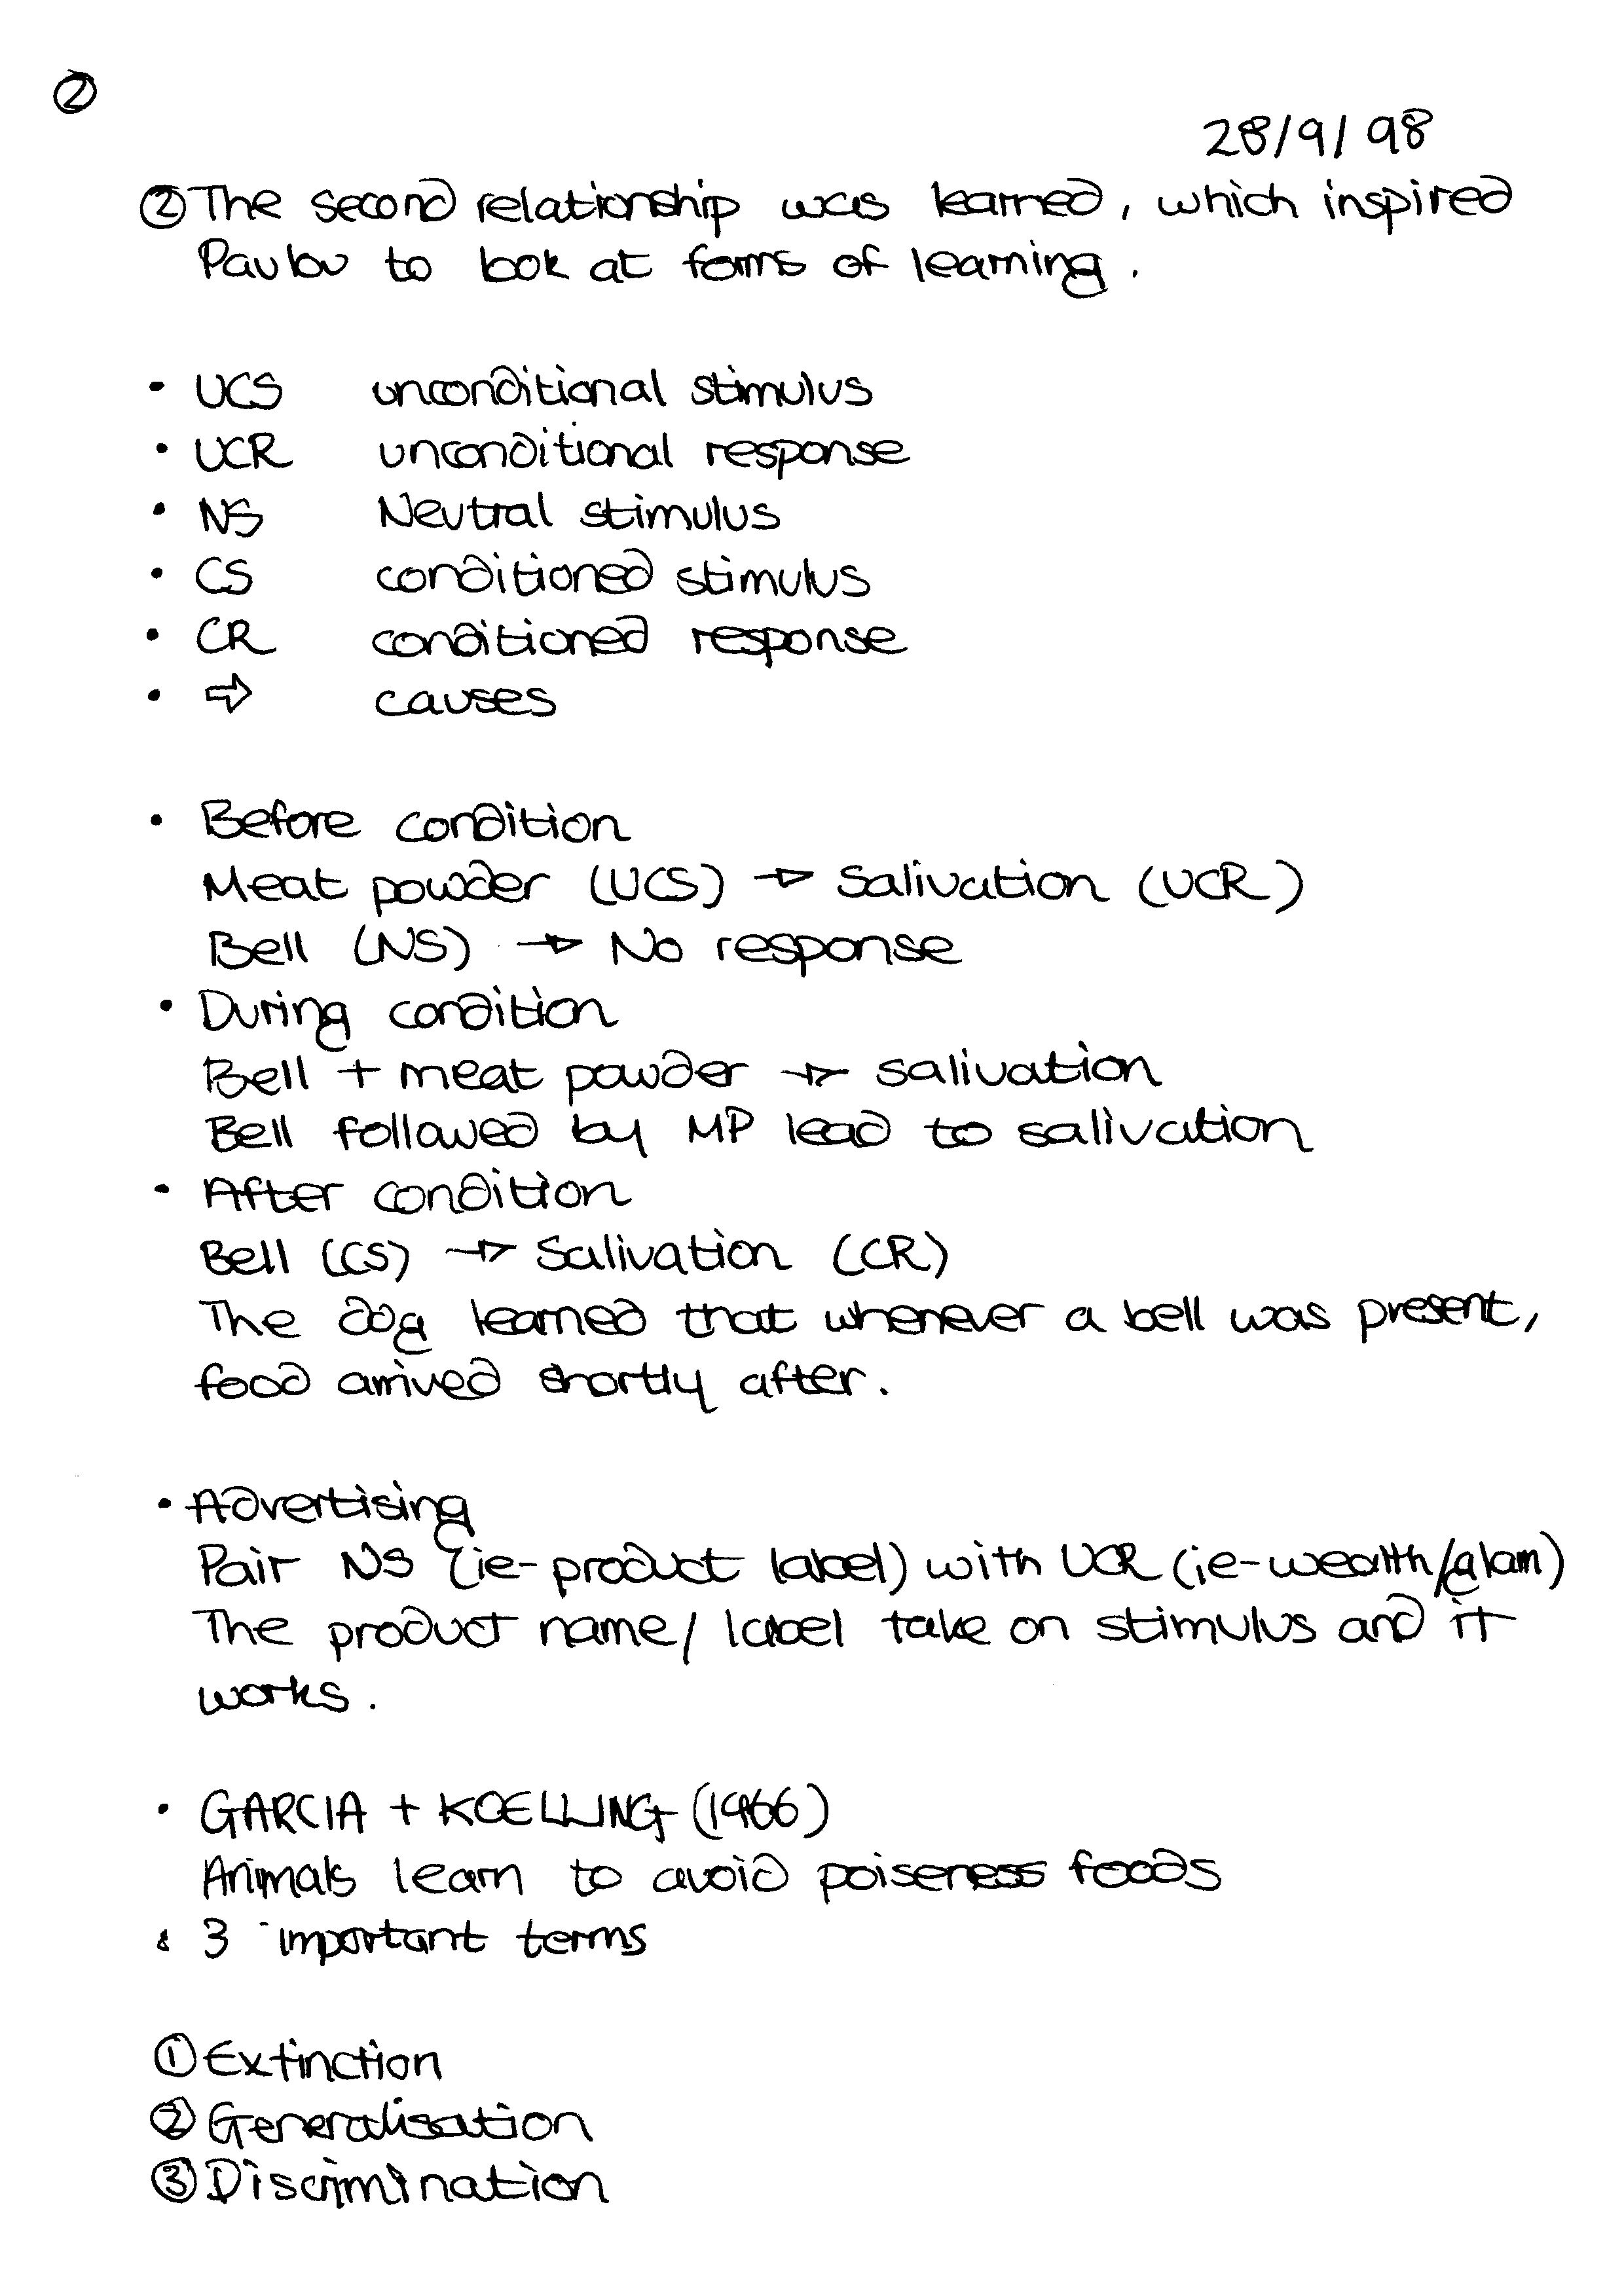 ②
28/9/98
② The second relationship was learned, which inspired
Pavlov to look at forms of learning.
• UCS unconditional stimulus
• UCR unconditional response
• NS Neutral stimulus
• CS conditioned stimulus
• CR conditioned response
• ⇨ causes
• Before condition
Meat powder (UCS) → Salivation (UCR)
Bell (NS) → No response
• During condition
Bell + meat powder → salivation
Bell followed by MP lead to salivation
• After condition
Bell (CS) → Salivation (CR)
The dog learned that whenever a bell was present,
food arrived shortly after.
• Advertising
Pair NS (ie-product label) with UCR (ie-wealth/glam)
The product name/label take on stimulus and it
works.
• GARCIA + KOELLING (1966)
Animals learn to avoid poiseness foods
• 3 important terms
① Extinction
② Generalisation
③ Discrimination